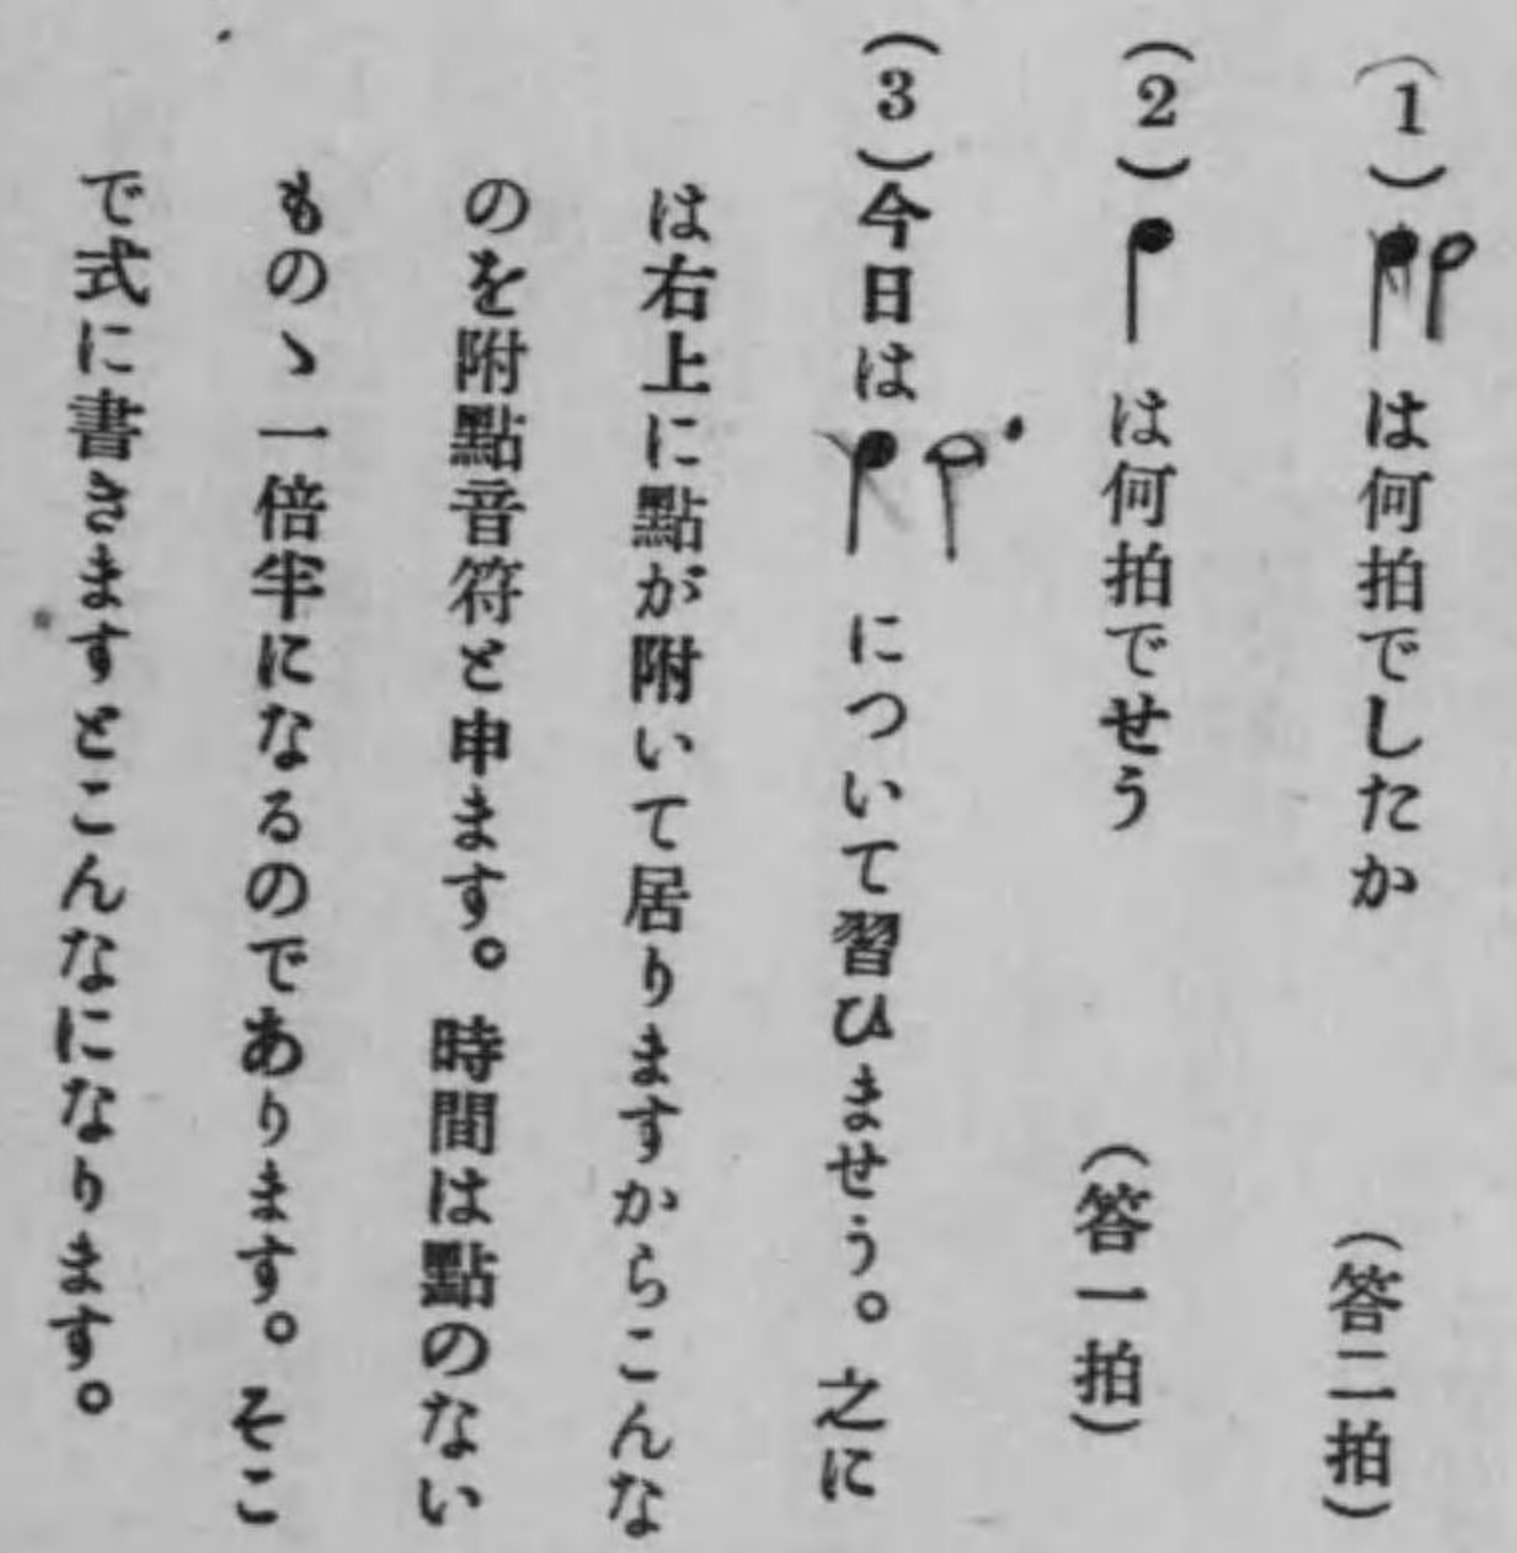 (1)♩𝅗𝅥は何拍でしたか (答二拍)
(2)♩は何拍でせう (答一拍)
(3)今日は♩𝅗𝅥・について習ひませう。之に
は右上に點が附いて居りますからこんな
のを附點音符と申ます。時間は點のない
ものゝ一倍半になるのであります。そこ
で式に書きますとこんなになります。